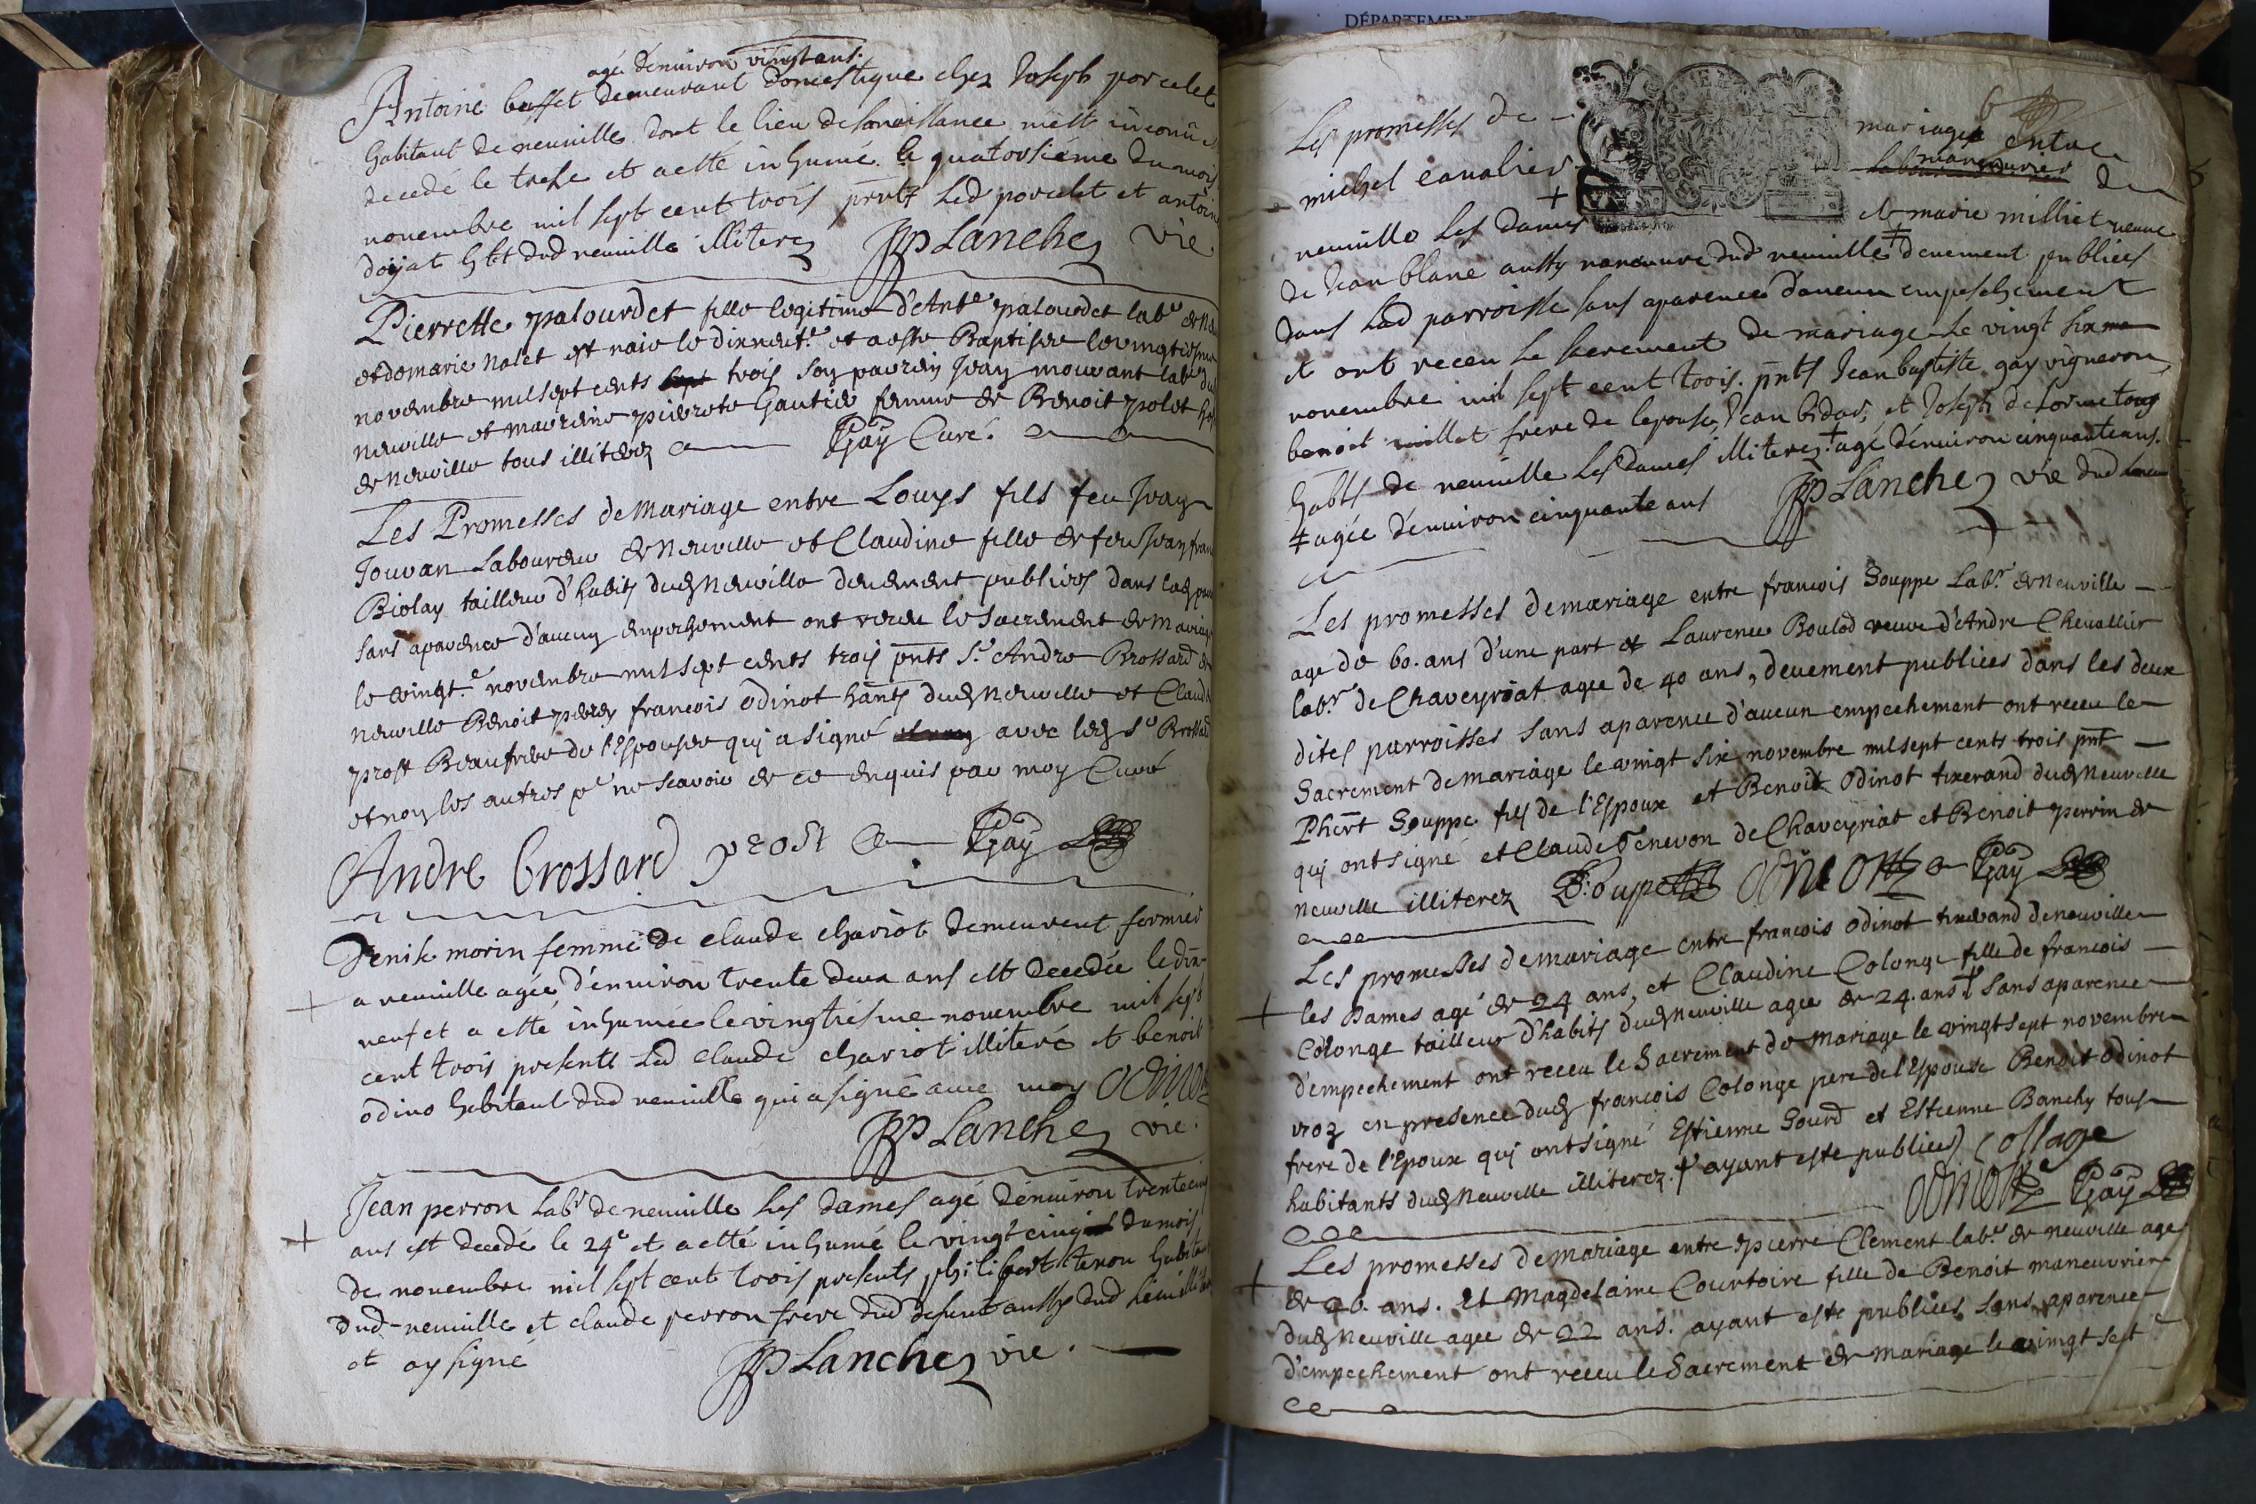 agé denuiron vingt ans.
Antoine buffet demeurant domestique chez Joseph porcelet
habitant de neuuille dont le lieu de sa naissance mest inconû
decedé le treise et a esté inhumé le quatorsiéme du mois
nouembre mil sept cent trois pnts led porcelet et antoine
doyat hbt dud neuuille illiterez JP Lanchez vie.
Pierrette palourdet fille legitime d'Ante palourdet labr de
et de marie nalet est naie le dixneufe et a este Baptisee le vingtiesme
novembre mil sept cents trois son parrein Jean mouvant labr dud
neuville et marreine pierrete Gautier femme de Benoit polet
de Neuville tous illiterez Gay Curé.
Les Promesses de Mariage entre Louys fils feu Jean
Jouvan Laboureur de Neuville et Claudine fille de feu Jean fran
Biolay tailleur d'habits dud Neuville deuement publiees dans lad
sans aparence d'aucun empechement ont receu le Sacrement de Mariage
le vingte novembre mil sept cents trois pnts Sr Andre Brossard de
neuville Benoit perrin francois odinot hants dud Neuville et Claude
prost Beaufrere de l'Espousee qui a signé avec led Sr Brossard
et non les autres pr ne scavoir de ce enquis par moy Curé
Andre brossard prost Gay
Denise morin femme de claude chariot demeurent fermier
a neuuille agée denuiron trente deux ans est decedée le dix
neuf et a esté inhumée le vingtiésme nouembre mil sept
cent trois presents led claude chariot illiteré et benoit
odino habitant dud neuuille qui a signé auec moy odinot
JP Lanchez vie.
Jean perron labr de neuuille les dames agé denuiron trente cinq
ans est decedé le 24e et a esté inhumé le vingt cinq du mois
de nouembre mil sept cent trois presents philibert tenon habitant
dud neuuille et claude perron frere dud defunt aussy dud lieu
et ay signé JP Lanchez vie.
DÉPARTEMENT
6
Les promesses de mariage entre
michel caualier manouurier de
neuuille les dames + et marie milliet veuue
de Jean blanc aussy manouure dud neuuille ‡ deuement publiées
dans lad parroisse sans aparence d'aucun empeschement
et ont receu le sacrement de mariage le vingt six
nouembre mil sept cent trois. pnts Jean baptiste gay vigneron,
benoit millet frere de lepouse, Jean bidar, et Joseph delorme tous
habts de neuuille les dames illiterez. + agé denuiron cinquante ans.
‡ agée denuiron cinquante ans JP Lanchez vie dud lieu
Les promesses de mariage entre francois Souppe Labr de Neuville
age de 60. ans d'une part et Laurence Boulod veuve d'Andre Chevallier
labr de Chaveyriat agee de 40 ans, deuement publiees dans les deux
dites parroisses sans aparence d'aucun empechement ont receu le
Sacrement de mariage le vingt six novembre mil sept cents trois pnt
Phert Souppe fils de l'Espoux et Benoit Odinot tixerand dud Neuville
qui ont signé et Claude Tenevon de Chaveyriat et Benoit perrin de
neuville illiterez Soupe odinot Gay
Les promesses de mariage entre francois odinot tixerand de neuville
les Dames agé de 24 ans, et Claudine Colonge fille de francois
Colonge tailleur d'habits dud Neuville agee de 24. ans + sans aparence
d'empechement ont receu le Sacrement de Mariage le vingt sept novembre
1703 en presence dud francois Colonge pere de l'Espouse Benoit Odinot
frere de l'Epoux qui ont signé Estienne Gourd et Estienne Banchy tous
habitants dud Neuville illiterez. + ayant este publiees) Collage
odinot Gay
Les promesses de mariage entre pierre Clement labr de neuville age
de 26. ans. Et Magdelaine Courtoire fille de Benoit maneuvrier
dud Neuville agee de 22 ans. ayant este publiees sans aparence
d'empechement ont receu le Sacrement de mariage le vingt sept